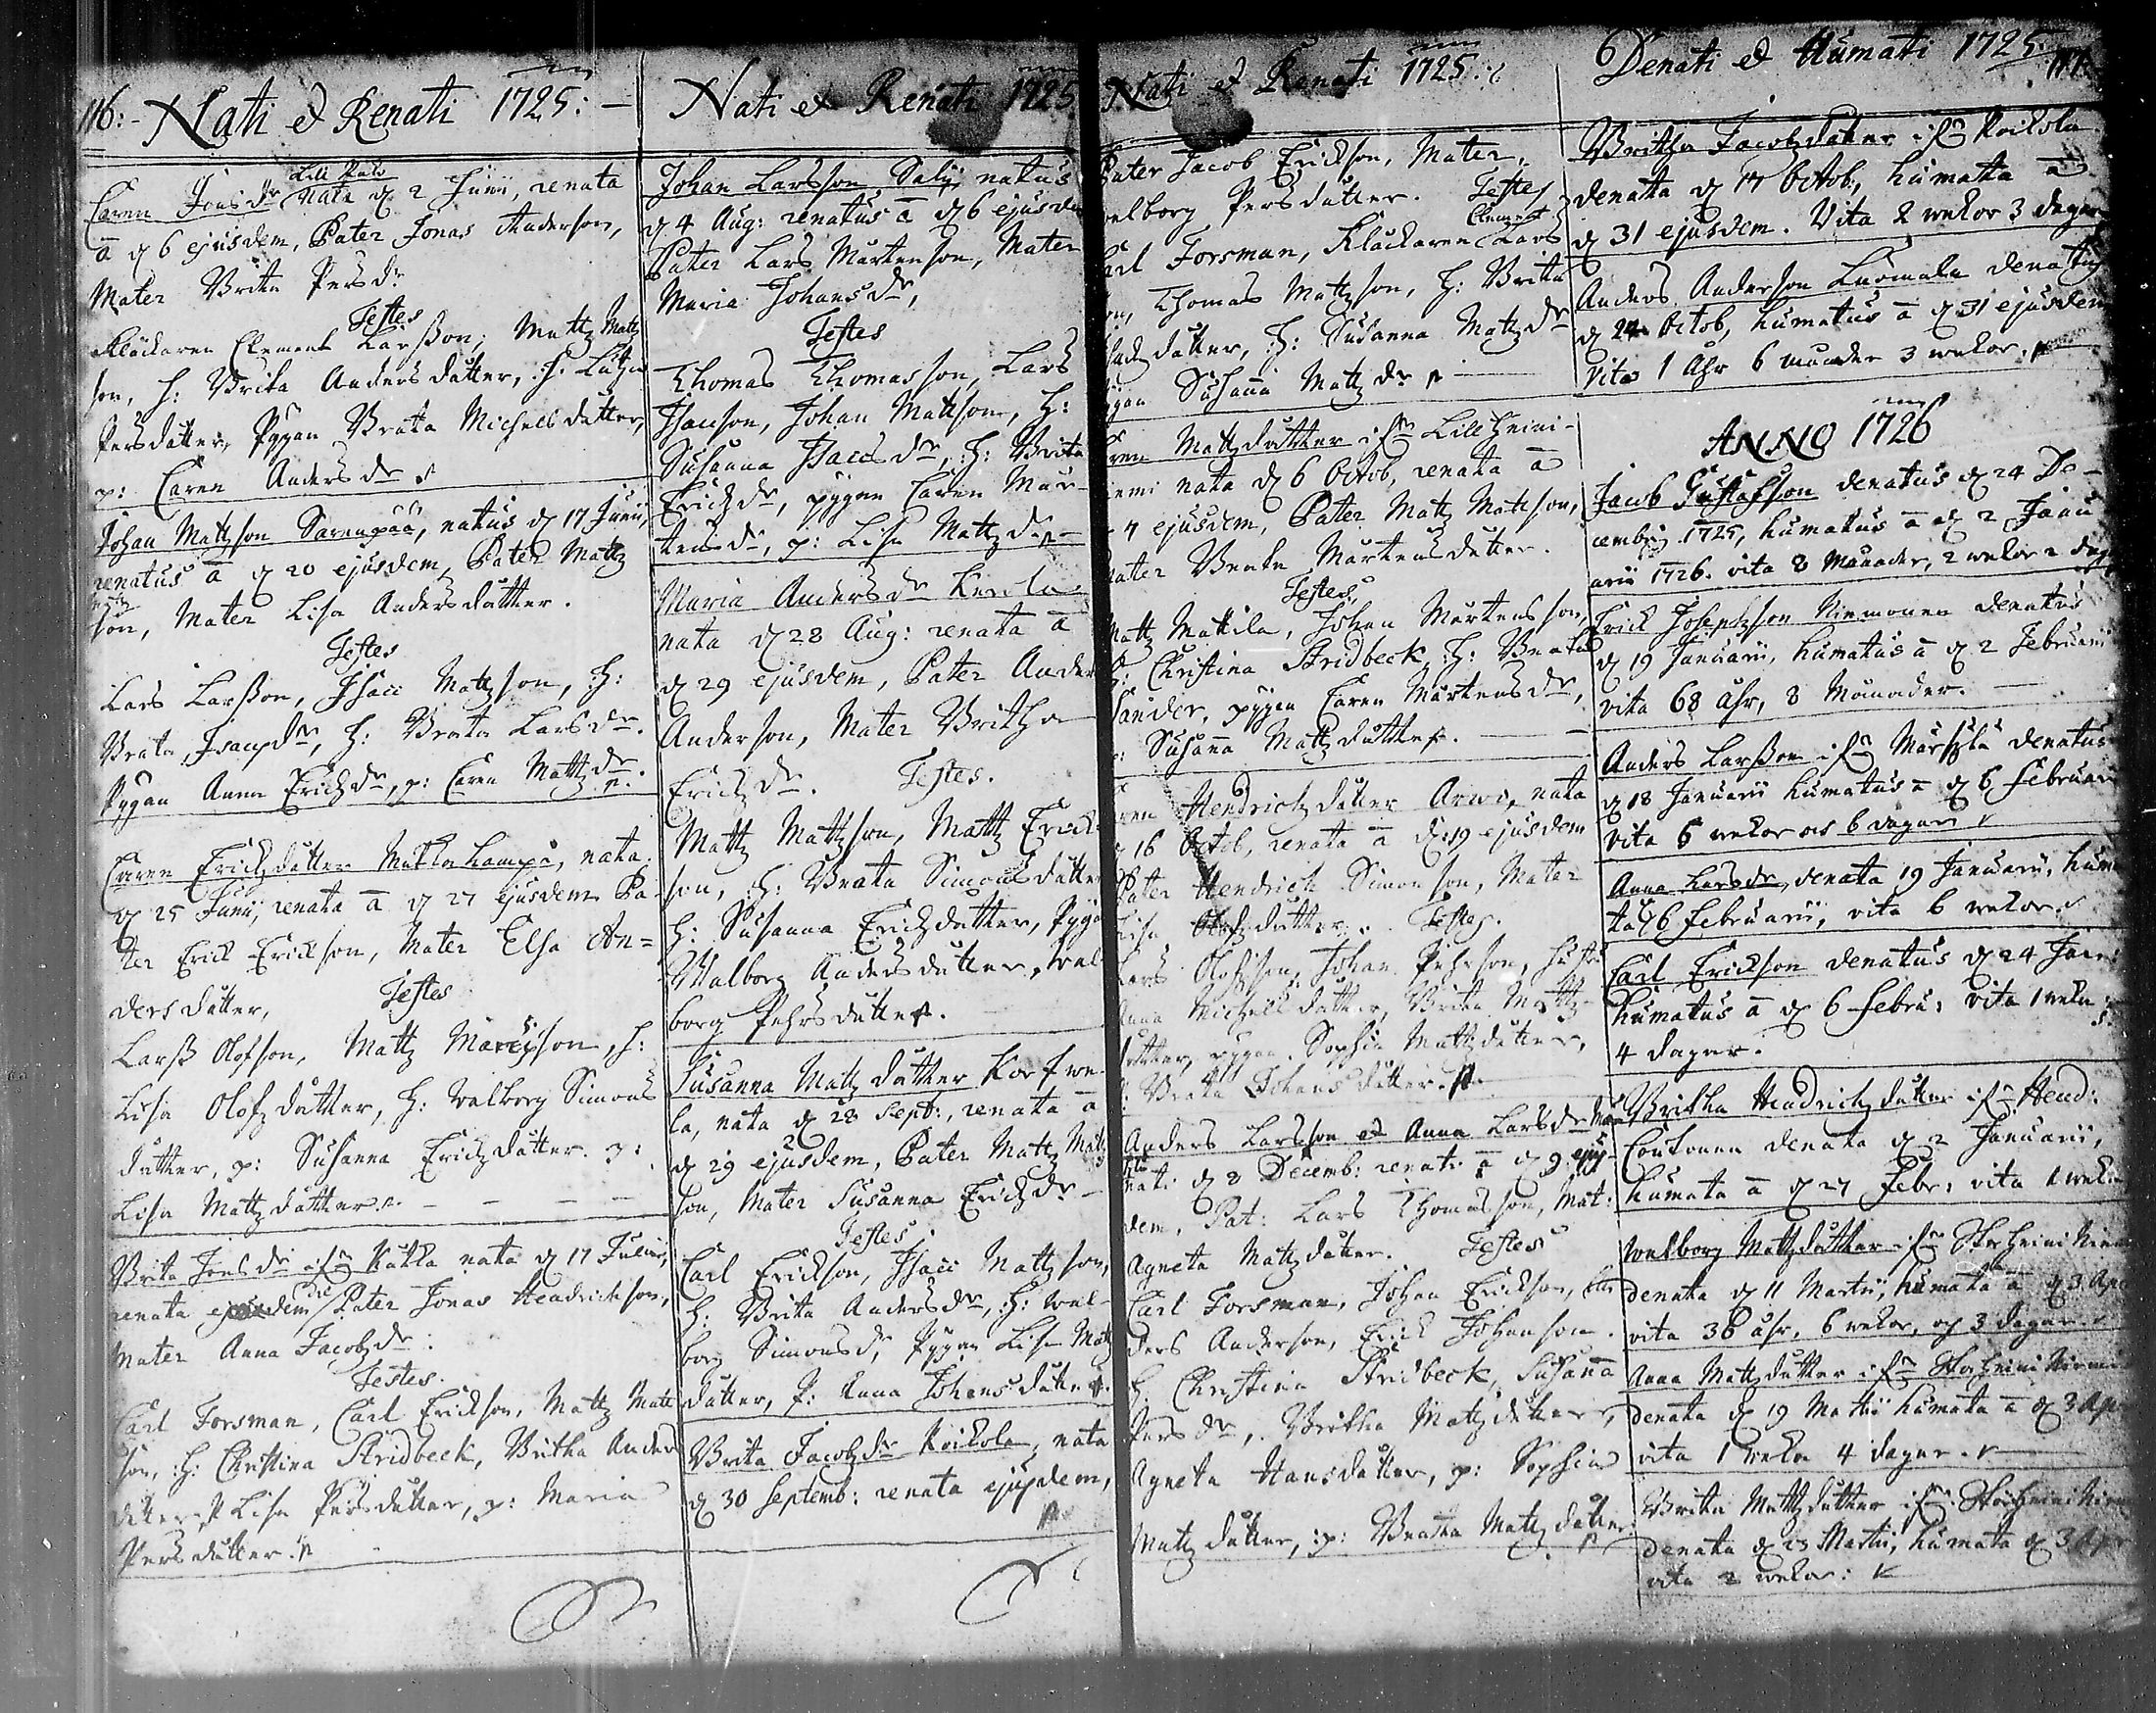 116:- Nati et Renati 1725: -
Lill Kulo
Caren Jonsdr nata d 2 Junii, renata
a d 6 ejusdem, Pater Jonas Anderson,
Mater Brita Persdr
Testes
Klåckaren Clement Larßon, Mattz Mattz
son, H: Brita Andersdotter, H:
Persdotter, Pygan Beata Michellsdotter,
p: Caren Andersdr
Johan Mattzson Sarenpää, natus d 17 Junii,
renatus a d 20 ejusdem, Pater Mattz
son, Mater Lisa Andersdotter.
Testes
Lars Larßon, Isaac Mattzson, H:
Beata, H: Beata Larsdr.
Pygan Anna Erichzdr, p: Caren Mattzdr.
Caren Erichzdotter, nata
d 25 Junii, renata a d 27 ejusdem Pa-
ter Erick Erickson, Mater Elsa An=
dersdotter,
Testes
Larß Olofson, Mattz son, H:
Lisa Olofzdotter, H: Walborg Simons
dotter, p: Susanna Erichzdotter. p:
Lisa Mattzdotter. - - -
Brita Jonsdr ifrn Kukla nata d 17 Julii,
renata ejusdem die Pater Jonas Hendrickson,
Mater Anna Jacobzdr.
Testes.
Carl Forsman, Carl Erickson, Mattz Mattz
son, H: Christina Stridbeck, Britha Anders
dotter, P Lisa Persdotter, p: Maria
Persdotter.
Nati et Renati 1725
Johan Larsson Salij natus
d 4 Aug: renatus a d 6 ejusdem
Pater Lars Mårtenson, Mater
Maria Johansdr,
Testes
Thomas Thomasson, Lars
Johan Mattson, H:
Susanna Isacsdr, H: Brita
Erichzdr, pygan Caren Mår-
tensdr, p: Lisa Mattzdr
Maria Andersdr
nata d 28 Aug: renata a
d 29 ejusdem, Pater Anders
Anderson, Mater Britha
Erichzdr. Testes.
Mattz Mattzson, Mattz Erick-
son, H: Beata Simonsdotter
H: Susanna Erichzdotter, Pyga
Walborg Andersdotter, Wal-
borg Pehrsdotter.
Susanna Mattzdotter
la, nata d 28 Sept:, renata a
d 29 ejusdem, Pater Mattz Mattz
son, Mater Susanna Erichzdr -
Testes.
Carl Erickson, Isaac Mattzson,
H: Brita Andersdr, H: Wal-
borg Simonsdr, Pygan Lisa Mattz
dotter, P: Anna Johansdotter.
Brita Jacobzdr Koikola, nata
d 30 Septemb: renata ejusdem,
Nati et Renati 1725:
Pater Jacob Erickson, Mater,
elborg Persdotter. Testes
Carl Forsman, Klåckaren Clement Lars
on, Thomas Mattzson, H: Brita
dotter, H: Susanna Mattzdr
Pygan Susanna Mattzdr
Mattzdotter ifrn Lillheini-
emi nata d 6 Octob, renata a
7 ejusdem, Pater Mattz Mattson,
Mater Beata Mårtensdotter.
Testes,
Mattz Mattila, Johan Mårtensson,
H: Christina Stridbeck, H: Beata
Sander, pygan Caren Mårtensdr,
p: Susanna Mattzdotter. -
Hendrichzdotter Arwi, nata
d 16 Octob, renata a d 19 ejusdem
Pater Hendrich Simonson, Mater
Lisa Olofzdotter. Testes.
Lars Olofsson, Johan Pehrson, Hustr
Anna Michellsdotter, Brita Mattz
dotter, pygan Sophia Mattzdotter,
p: Beata Johansdotter.
Anders Larsson et Anna Larsdr
nati d 8 Decemb: renati a d 9 ejus-
dem, Pat: Lars Thomasson, Mat:
Agneta Mattzdotter. Testes
Carl Forsman, Johan Erickson, An
ders Anderson, Erick Johanson.
H. Christina Stridbeck, Susanna
Persdr, Britha Mattzdotter,
Agneta Hansdotter, p: Sophia
Mattzdotter, p: Beata Mattzdotter
Denati et Humati 1725. 117.
Britha Jacobzdotter ifrn Koikola
denata d 17 Octob, humata a
d 31 ejusdem. Vita 2 wekor 3 dagar
Anders Anderson Luomala denatus
d 24 Octob, humatus a d 31 ejusdem
Vita 1 Åhr 6 månader 3 wekor.
ANNO 1726
Jacob Gustafson denatus d 24 De-
cembris 1725, humatus a d 2 Janu
arii 1726. vita 8 Månader, 2 wekor 2 dagr
Erick Josephson Niemonen denatus
d 19 Januarii, humatus a d 2 Februarii
vita 68 åhr, 8 Månader. -
Anders Larßon ifrn denatus
d 18 Januarii humatus a d 6 Februari
Vita 6 wekor os 6 dagar
Anna Larsdr, denata 19 Januarii, huma
ta d 6 Februarii, vita 6 wekor.
Carl Erickson denatus d 24 Jan:
humatus a d 6 Febru: vita 1 weka
4 dagar.
Britha Hendrichzdotter ifrn Hend:
Contonen denata d 2 Januarii,
humata a d 27 Febr: vita 1 wek:
Walborg Mattzdotter ifrn Storheini Niem
denata d 11 Martii, humata a d 3 Apr
vita 36 åhr, 6 wekor, os 3 dagar.
Anna Mattzdotter ifrn Storheini Niemi
denata d 19 Martii humata a d 3 Apr
vita 1 weka 4 dagar.
Brita Mattzdotter ifrn Storheini Niem
denata d 23 Martii, humata d 3 Apr
vita 2 wekor: